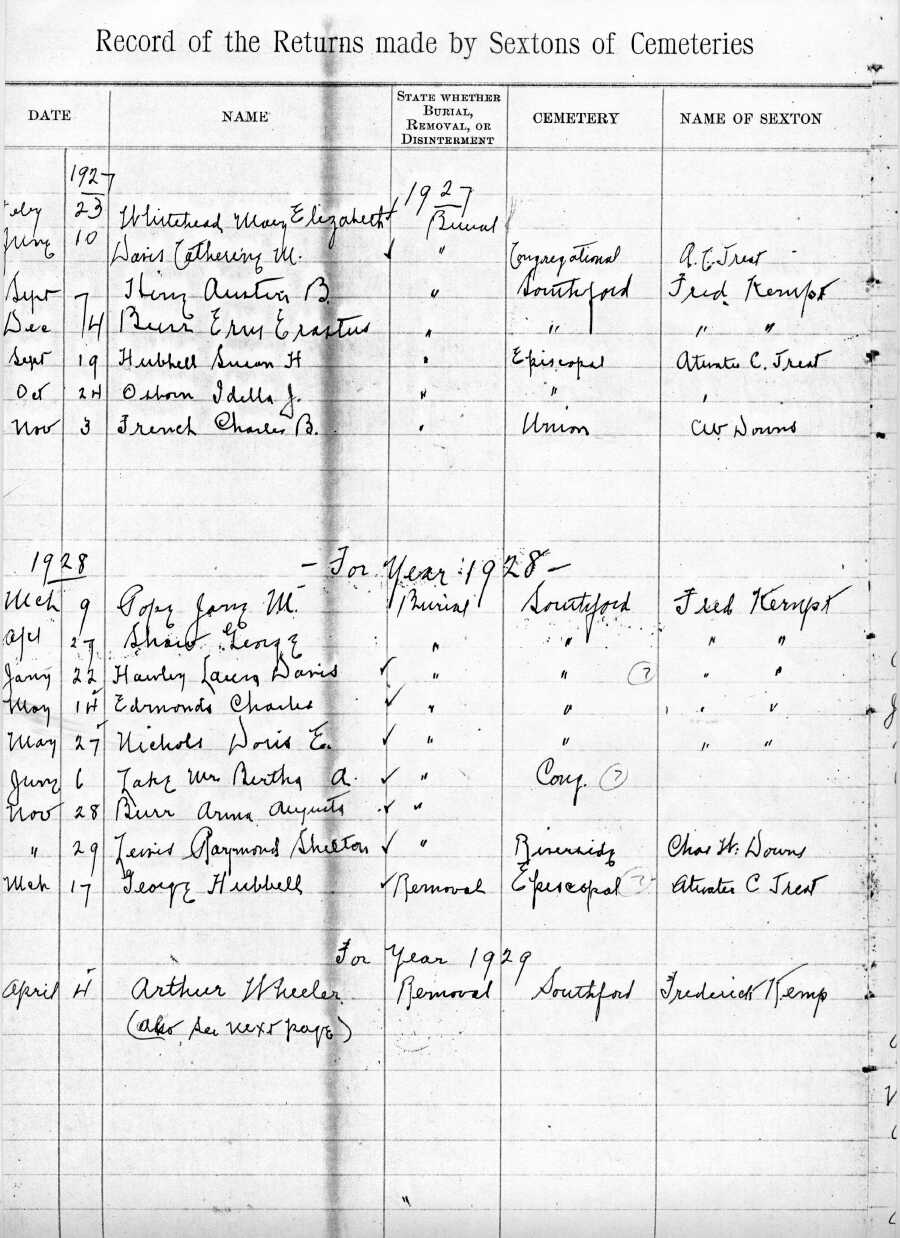 Record of the Returns made by Sextons of Cemeteries
DATE NAME STATE WHETHER BURIAL, REMOVAL, OR DISINTERMENT CEMETERY NAME OF SEXTON
1927 1927
Feby 23 Whitehead Mary Elizabeth ✓ Burial
June 10 Davis Catherine M. ✓ " Congregational A. C. Treat
Sept 7 King Austin B. " Southford Fred Kempt
Dec 14 Burr Erastus " " " "
Sept 19 Hubbell Susan H " Episcopal Atwater C. Treat
Oct 24 Osborn Idella J. " " "
Nov 3 French Charles B. " Union CW Downs
1928 - For Year 1928 -
Mch 9 Pope Jane M. Burial Southford Fred Kempt
Apl 27 Shaw George " " " "
Jany 22 Hawley Laura Davis ✓ " " (?) " "
May 14 Edmonds Charles ✓ " " " "
May 27 Nichols Doris E. ✓ " " " "
June 6 Lake Mrs Bertha A. ✓ " Cong. (?)
Nov 28 Burr Anna Augusta ✓ "
" 29 Lewis Raymond Shelton ✓ " Riverside Chas W. Downs
Mch 17 George Hubbell ✓ Removal Episcopal (?) Atwater C Treat
For Year 1929
April 4 Arthur Wheeler Removal Southford Frederick Kemp
(also see next page)
"